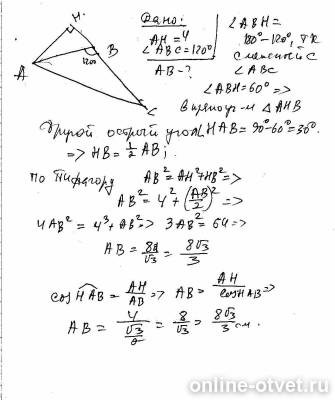 H.
A
B
120
C
Дано:
AH = 4
∠ABC = 120°
AB - ?
∠ABH =
180° - 120°, т.к
смежный с
∠ABC
∠ABH = 60° =>
в прямоуг-м △AHB
Другой острый угол ∠HAB = 90° - 60° = 30°
=> HB = 1/2 AB;
по Пифагору AB² = AH² + HB² =>
AB² = 4² + (AB/2)² =>
4AB² = 4³ + AB² => 3AB² = 64 =>
AB = 8/√3 = 8√3/3
cos HAB = AH/AB => AB = AH/cos HAB =>
AB = 4/(√3/2) = 8/√3 = 8√3/3 см.
online-otvet.ru